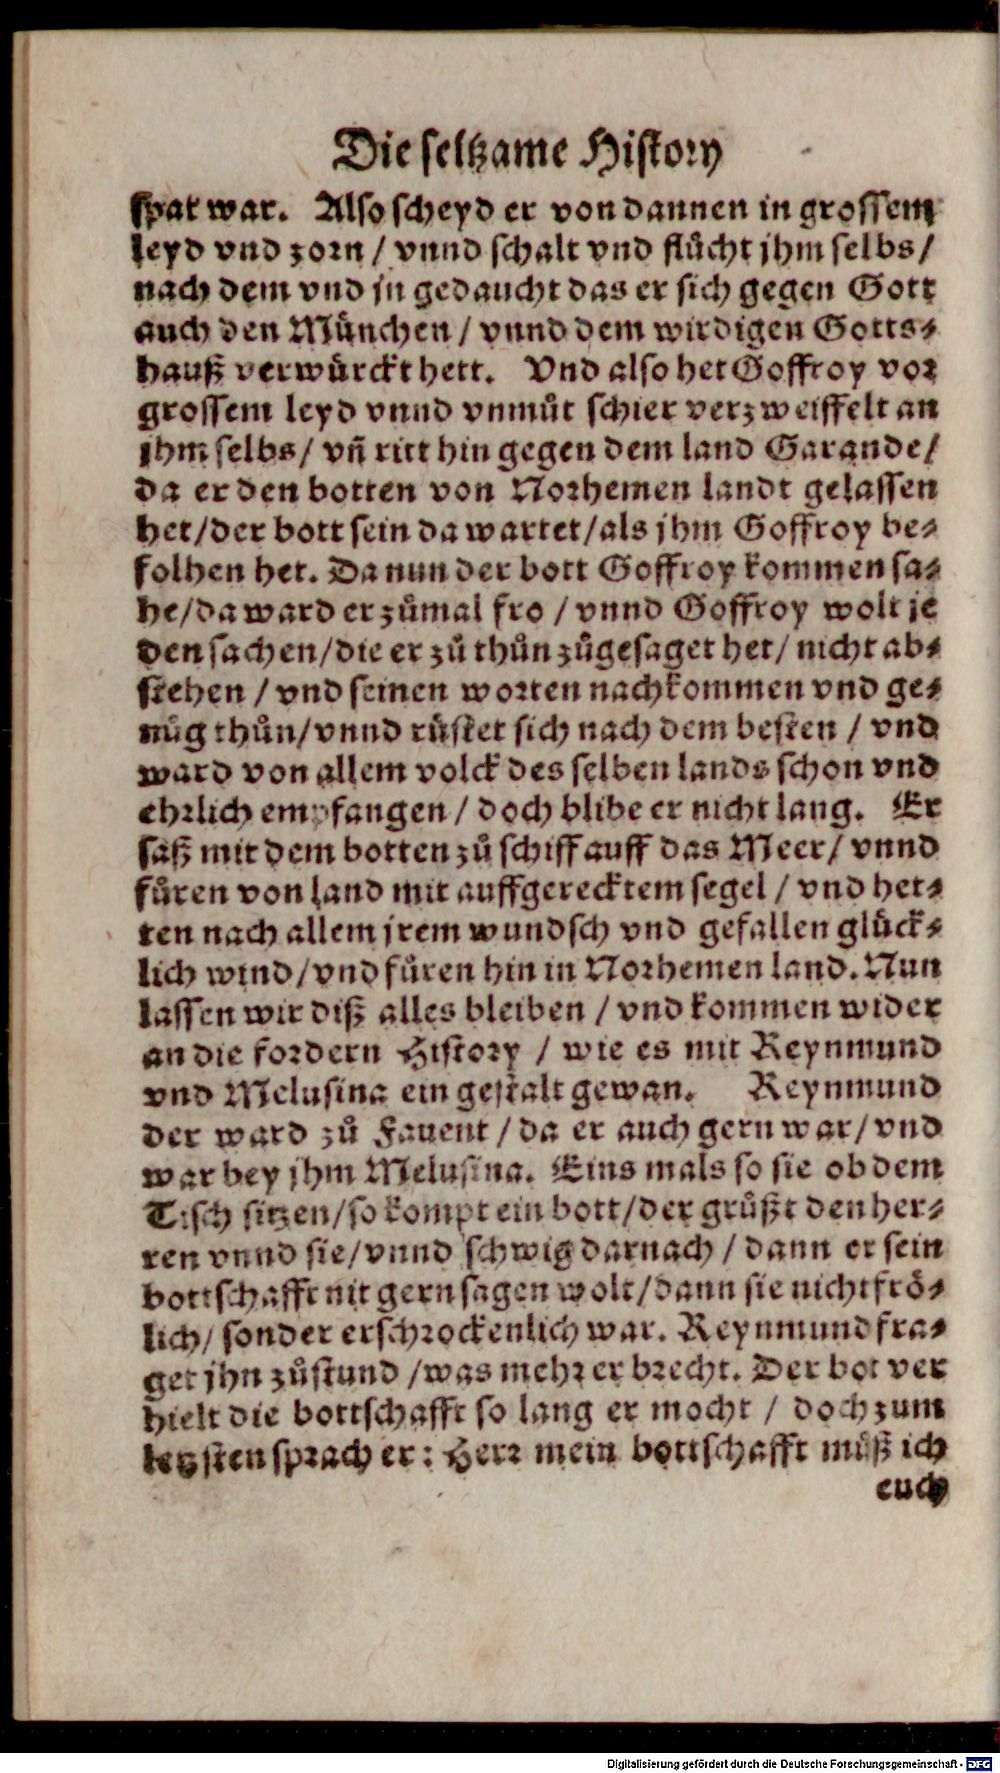 Die seltzame History
spat war. Also scheyd er von dannen in grossem
leyd vnd zorn / vnnd schalt vnd flůcht jhm selbs /
nach dem vnd jn gedaucht das er sich gegen Gott
auch den München / vnnd dem wirdigen Gotts⸗
hauß verwürckt hett. Vnd also het Goffroy vor
grossem leyd vnnd vnmůt schier verzweiffelt an
jhm selbs / vñ ritt hin gegen dem land Garande /
da er den botten von Norhemen landt gelassen
het / der bott sein da wartet / als jhm Goffroy be⸗
folhen het. Da nun der bott Goffroy kommen sa⸗
he / da ward er zůmal fro / vnnd Goffroy wolt je
den sachen / die er zů thůn zůgesaget het / nicht ab⸗
stehen / vnd seinen worten nachkommen vnd ge⸗
nůg thůn / vnnd rüstet sich nach dem besten / vnd
ward von allem volck des selben lands schon vnd
ehrlich empfangen / doch blibe er nicht lang. Er
saß mit dem botten zů schiff auff das Meer / vnnd
fůren von land mit auffgerecktem segel / vnd het⸗
ten nach allem jrem wundsch vnd gefallen glück⸗
lich wind / vnd fůren hin in Norhemen land. Nun
lassen wir diß alles bleiben / vnd kommen wider
an die fordern History / wie es mit Reynmund
vnd Melusina ein gestalt gewan. Reynmund
der ward zů Fauent / da er auch gern war / vnd
war bey jhm Melusina. Eins mals so sie ob dem
Tisch sitzen / so kompt ein bott / der grůßt den her⸗
ren vnnd sie / vnnd schwig darnach / dann er sein
bottschafft nit gern sagen wolt / dann sie nicht frö⸗
lich / sonder erschrockenlich war. Reynmund fra⸗
get jhn zůstund / was mehr er brecht. Der bot ver
hielt die bottschafft so lang er mocht / doch zum
letzsten sprach er : Herr mein bottschafft můß ich
euch
Digitalisierung gefördert durch die Deutsche Forschungsgemeinschaft - DFG